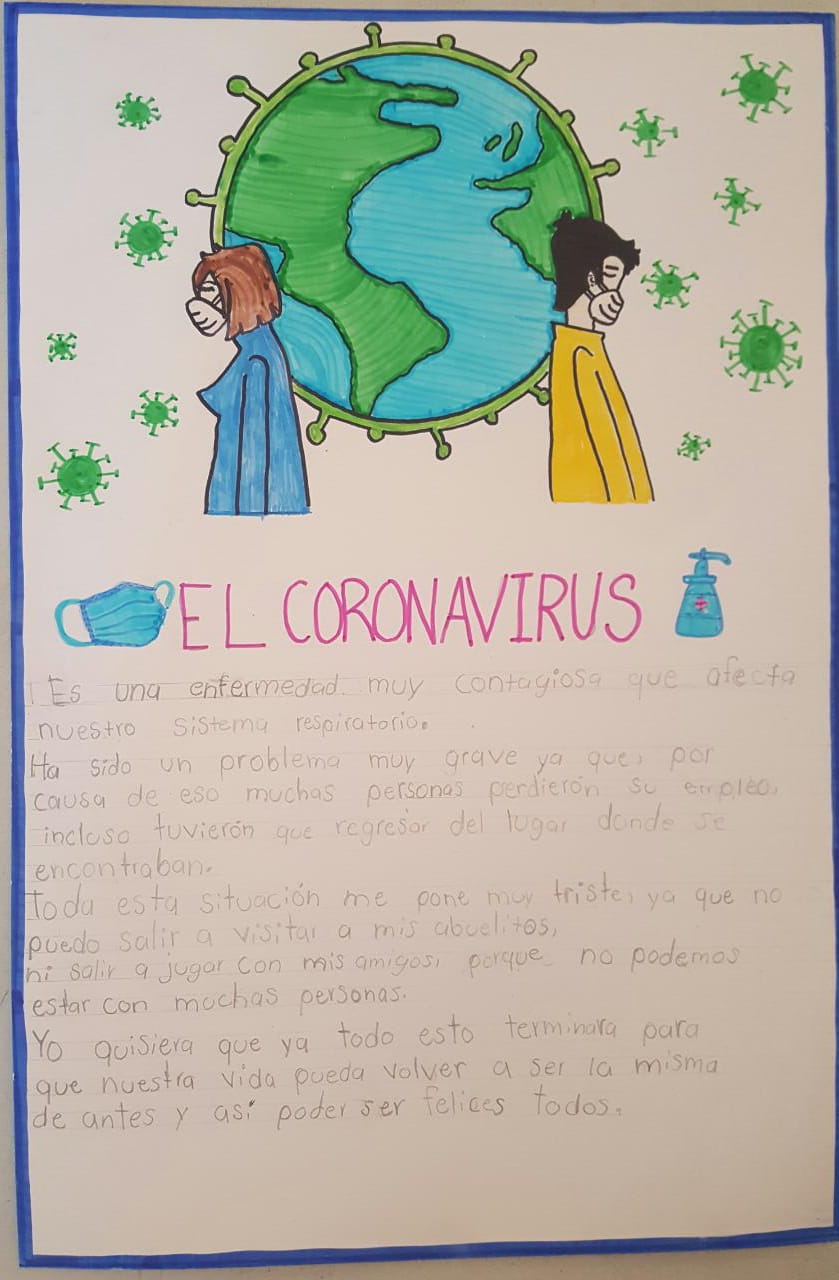 EL CORONAVIRUS
Es una enfermedad muy contagiosa que afecta
nuestro sistema respiratorio.
Ha sido un problema muy grave ya que, por
causa de eso muchas personas perdierón su empleo,
incluso tuvierón que regresar del lugar donde se
encontraban.
Toda esta situación me pone muy triste, ya que no
puedo salir a visitar a mis abuelitos,
ni salir a jugar con mis amigos, porque no podemos
estar con muchas personas.
Yo quisiera que ya todo esto terminara para
que nuestra vida pueda volver a ser la misma
de antes y así poder ser felices todos.